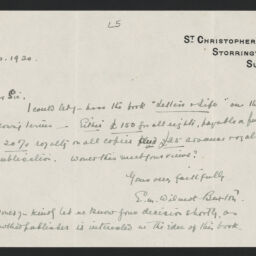 L5
ST CHRISTOPHER
STORRING
SU
. 1920.
Sir,
I could let you have the book "Letters & Life" on the
terms — Either £150 for all rights, payable
20% royalty on all copies plus £25 advance royal
publication. Would this meet your views?
Yours very faithfully
E.M. Wilmot-Buxton
kindly let us know your decision shortly, as
another publisher is interested in the idea of this book.